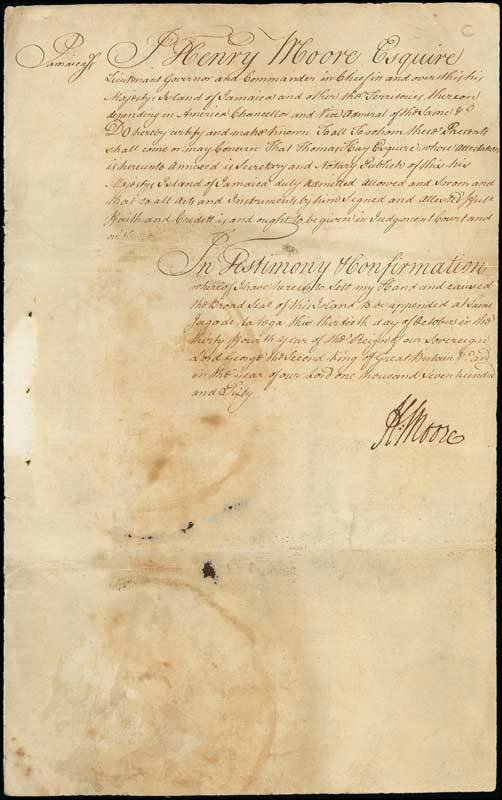 C
Jamaica Ss I Henry Moore Esquire
Lieutenant Governor and Commander in Cheif in and over this his
Majestys Island of Jamaica and other the Territories thereon
depending in America Chancellor and Vice Admiral of the same &c
Do hereby certify and make known To all To whom these Presents
shall come or may Concern That Thomas Hay Esquire whose Attestation
is hereunto Annexed is Secretary and Notary Publick of this his
Majestys Island of Jamaica duly Admitted Allowed and Sworn and
that to all Acts and Instruments by him Signed and Attested full
Faith and Credett is and ought to be given in Judgment Court and
without
In Testimony & Confirmation
whereof I have hereunto Sett my Hand and caused
the Broad Seal of this Island to be appended at Saint
Jago de la Vega this thirtieth day of October in the
thirty ffourth year of the Reign of our Sovereign
Lord George the Second King of Great Britain & and
in the Year of our Lord One thousand Seven hundred
and Sixty
H: Moore